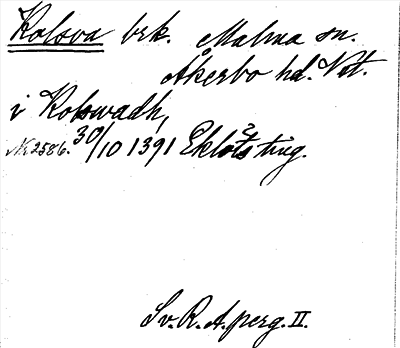 Kolsva brk. Malma sn.
Åkerbo hd. Vstm.
i Kolswadh,
N. 2586. 30/10 1391 Eklöts ting.
Sv. R. A. perg. II.